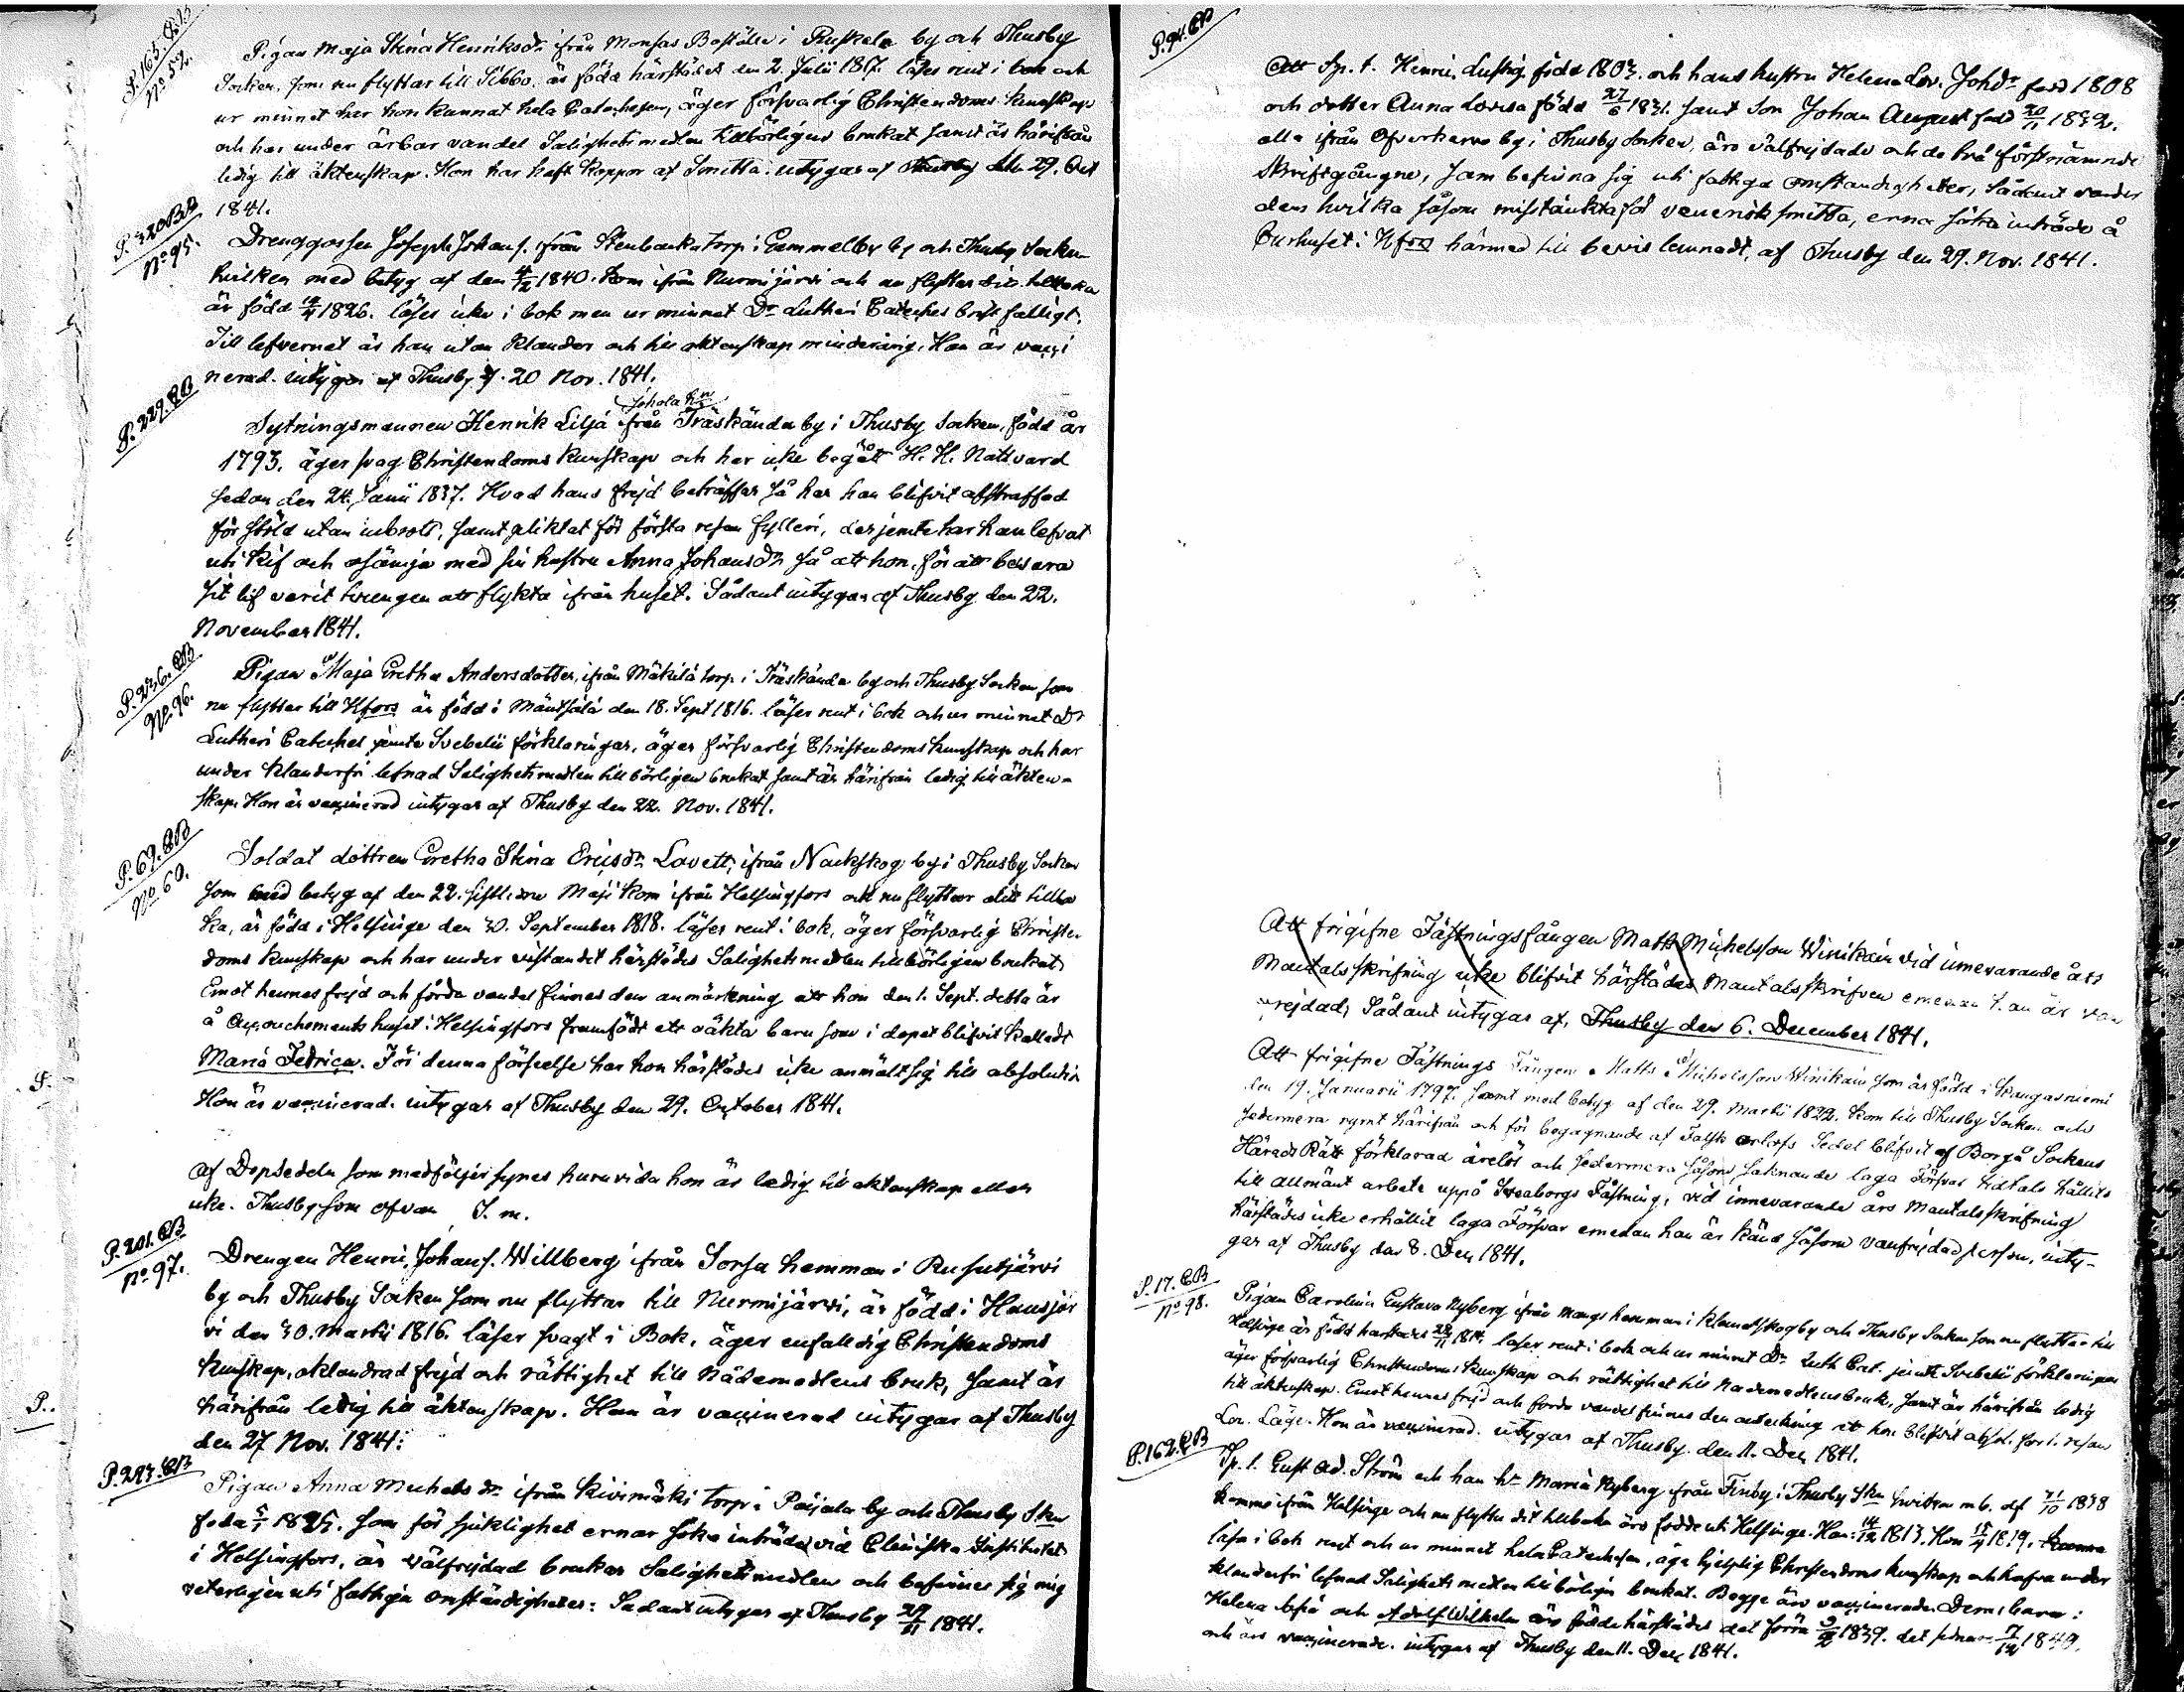 P.163.CB
No 52.
Pigan Maja Stina Henriksdr ifrån Monsas Boställe i Ruskela by och Thusby
Socken, som nu flyttar till Sibbo, är född härstädes den 2. Julii 1817. läser rent i bok och
ur minnet har hon kunnat hela Catechesen, äger försvarlig Christendoms kunskap
och har under ärbar vandel Salighets medlen tillbörligen brukat samt är härifrån
ledig till äktenskap. Hon har haft koppor af Smitta. intygar af Thusby den 29. Oct
1841.
P.320.CB
No 95.
Drenggossen Joseph Johans. ifrån Stenbacka torp i Gammelby by och Thusby Socken
hvilken med betyg af den 1840. kom ifrån Nurmijärvi och nu flyttar dit tillbaka
är född 1826. läser icke i bok men ur minnet Dr Lutheri Cateches bristfälligt.
Till lefvernet är han utan klander och till äktenskap minderårig. Han är vacci
nerad. intygar af Thusby d. 20 Nov. 1841.
P.229.CB
Johola hn
Sytningsmannen Henrik Lilja ifrån Träskända by i Thusby Socken, född år
1793. äger svag Christendoms kunskap och har icke begått H. H. Nattvard
sedan den 24. Junii 1837. Hvad hans frejd beträffar så har han blifvit afstraffad
för stöld utan inbrott, samt pliktat för första resan fylleri, desjemte har han lefvat
uti kif och osämja med sin hustru Anna Johansdr så att hon, för att
sit lif varit tvungen att flykta ifrån huset. Sådant intygar af Thusby den 22.
November 1841.
P.236.CB
No 96.
Pigan Maja Gretha Andersdotter, ifrån Mäkilä torp i Träskända by och Thusby Socken som
nu flyttar till Hfors är född i Mäntsälä den 18. Sept 1816. läser rent i bok och ur minnet Dr
Lutheri Catechet jemte Svebelii förklaringar, äger försvarlig Christendoms kunskap och har
under klanderfri lefnad Salighetsmedlen tillbörligen brukat samt är härifrån ledig till äkten-
skap. Hon är vaccinerad intygar af Thusby den 22. Nov. 1841.
P.69.CB
No 60.
Soldat dottren Gretha Stina Ericsdr Lovett, ifrån Nackskog by i Thusby Socken
som med betyg af den 22. sistl. Maji kom ifrån Helsingfors och nu flyttar dit tillba
ka, är född i Helsinge den 30. September 1818. läser rent i bok, äger försvarlig Christen
doms kunskap och har under vistandet härstädes Salighetsmedlen tillbörligen brukat.
Emot hennes frejd och förda vandel finnes den anmärkning att hon den 1. Sept. detta år
å Accouchements huset i Helsingfors framfödt ett oäkta barn som i dopet blifvit kalladt
Maria Fedrica. För denna förseelse har hon härstädes icke anmält sig till absolution
Hon är vaccinerad. intygar af Thusby den 29. October 1841.
Af Dopsedeln som medföljer synes huruvida hon är ledig till äktenskap eller
icke. Thusby som ofvan S. m.
P.201.CB
No 97.
Drengen Henric Johans. Willberg ifrån Sorsa hemman i Rusutjärvi
by och Thusby Socken som nu flyttar till Nurmijärvi, är född i Hausjär
vi den 30. Martii 1816. läser svagt i Bok, äger enfalldig Christendoms
kunskap, oklandrad frejd och rättighet till Nådemedlens bruk, samt är
härifrån ledig till äktenskap. Han är vaccinerad intygar af Thusby
den 27 Nov. 1841.
P.293.CB
Pigan Anna Michels dr ifrån Kivimäki torp i Paijala by och Thusby Skn
född som för sjuklighet ernar söka inträde vid Cliniska Institutet
i Helsingfors, är välfrejdad brukar Salighets medlen och befinner sig mig
veterligen uti fattiga omständigheter: Sådant intygar af Thusby 29/11 1841.
P.94.CB
Att Sp. t. Henric Lustig född 1803. och hans hustru Helena Lov. Johdr född 1808
och dotter Anna Lovisa född 27/6 1831. samt Son Johan August född 20/11 1832.
alla ifrån Ofverkervo by i Thusby Socken, äro välfrejdade och de två förstnämnde
skriftgångne, som befinna sig uti fattiga omständigheter, sådant varder
dem hvilka såsom misstänkta för venerisk smitta, erna söka inträde å
Curhuset i Hfors härmed till bevis lemnadt, af Thusby den 29. Nov. 1841.
Att frigifne Fästningsfången Matts Michelsson Winikain vid innevarande års
Mantalsskrifning icke blifvit härstädes Mantalsskrifven emedan han är van
frejdad, Sådant intygar af, Thusby den 6. December 1841.
Att frigifne Fästnings Fången Matts Michelsson Winikain som är född i Kangasniemi
den 19. Januarii 1797. samt med betyg af den 29. Martii 1822. kom till Thusby Socken och
sedermera rymt härifrån och för begagnande af Falsk orlofs Sedel blifvit af Borgå Sockens
Härads Rätt förklarad ärelös och sedermera såsom saknande laga Försvar hållits
till allmänt arbete uppå Sveaborgs Fästning, vid innevarande års Mantalsskrifning
härstädes icke erhållit laga Försvar emedan han är känd såsom vanfrejdad person, inty-
gar af Thusby den 8. Dec 1841.
P.17.CB
No 98.
Pigan Carolina Gustava Nyberg ifrån Mangs hemman i Klemetskog by och Thusby Socken som nu flyttar till
Helsinge är född härstädes läser rent i bok och ur minnet Dr Luth Cat. jemte Svebelii förklaringar
äger försvarlig Christendoms kunskap och rättighet till Nademedlens bruk, samt är härifrån ledig
till äktenskap. Emot hennes frejd och förda vandel finnes den anteckning att hon blifvit absol. för 1. resan
Lön. Läge. Hon är vaccinerad. intygar af Thusby den 11. Dec 1841.
P.162.CB
Sp. l. Gust Ad. Ström och hans hu Maria Nyberg ifrån Finby i Thusby Skn hvilka m b. af 31/10 1838
kommo ifrån Helsinge och nu flytta dit tillbaka äro födde uti Helsinge. Han 14/12 1813. Hon 1819.
läsa i bok rent och ur minnet hela Catechesen, äga hjelplig Christendoms kunskap och hafva under
klanderfri lefnad Salighets medlen tillbörligen brukat. Begge äro vaccinerade. Deras barn:
Helena Sofia och Adolf Wilhelm äro födde härstädes det förra 1839. det sednare
och äro vaccinerade. intygar af Thusby den 11. Dec 1841.